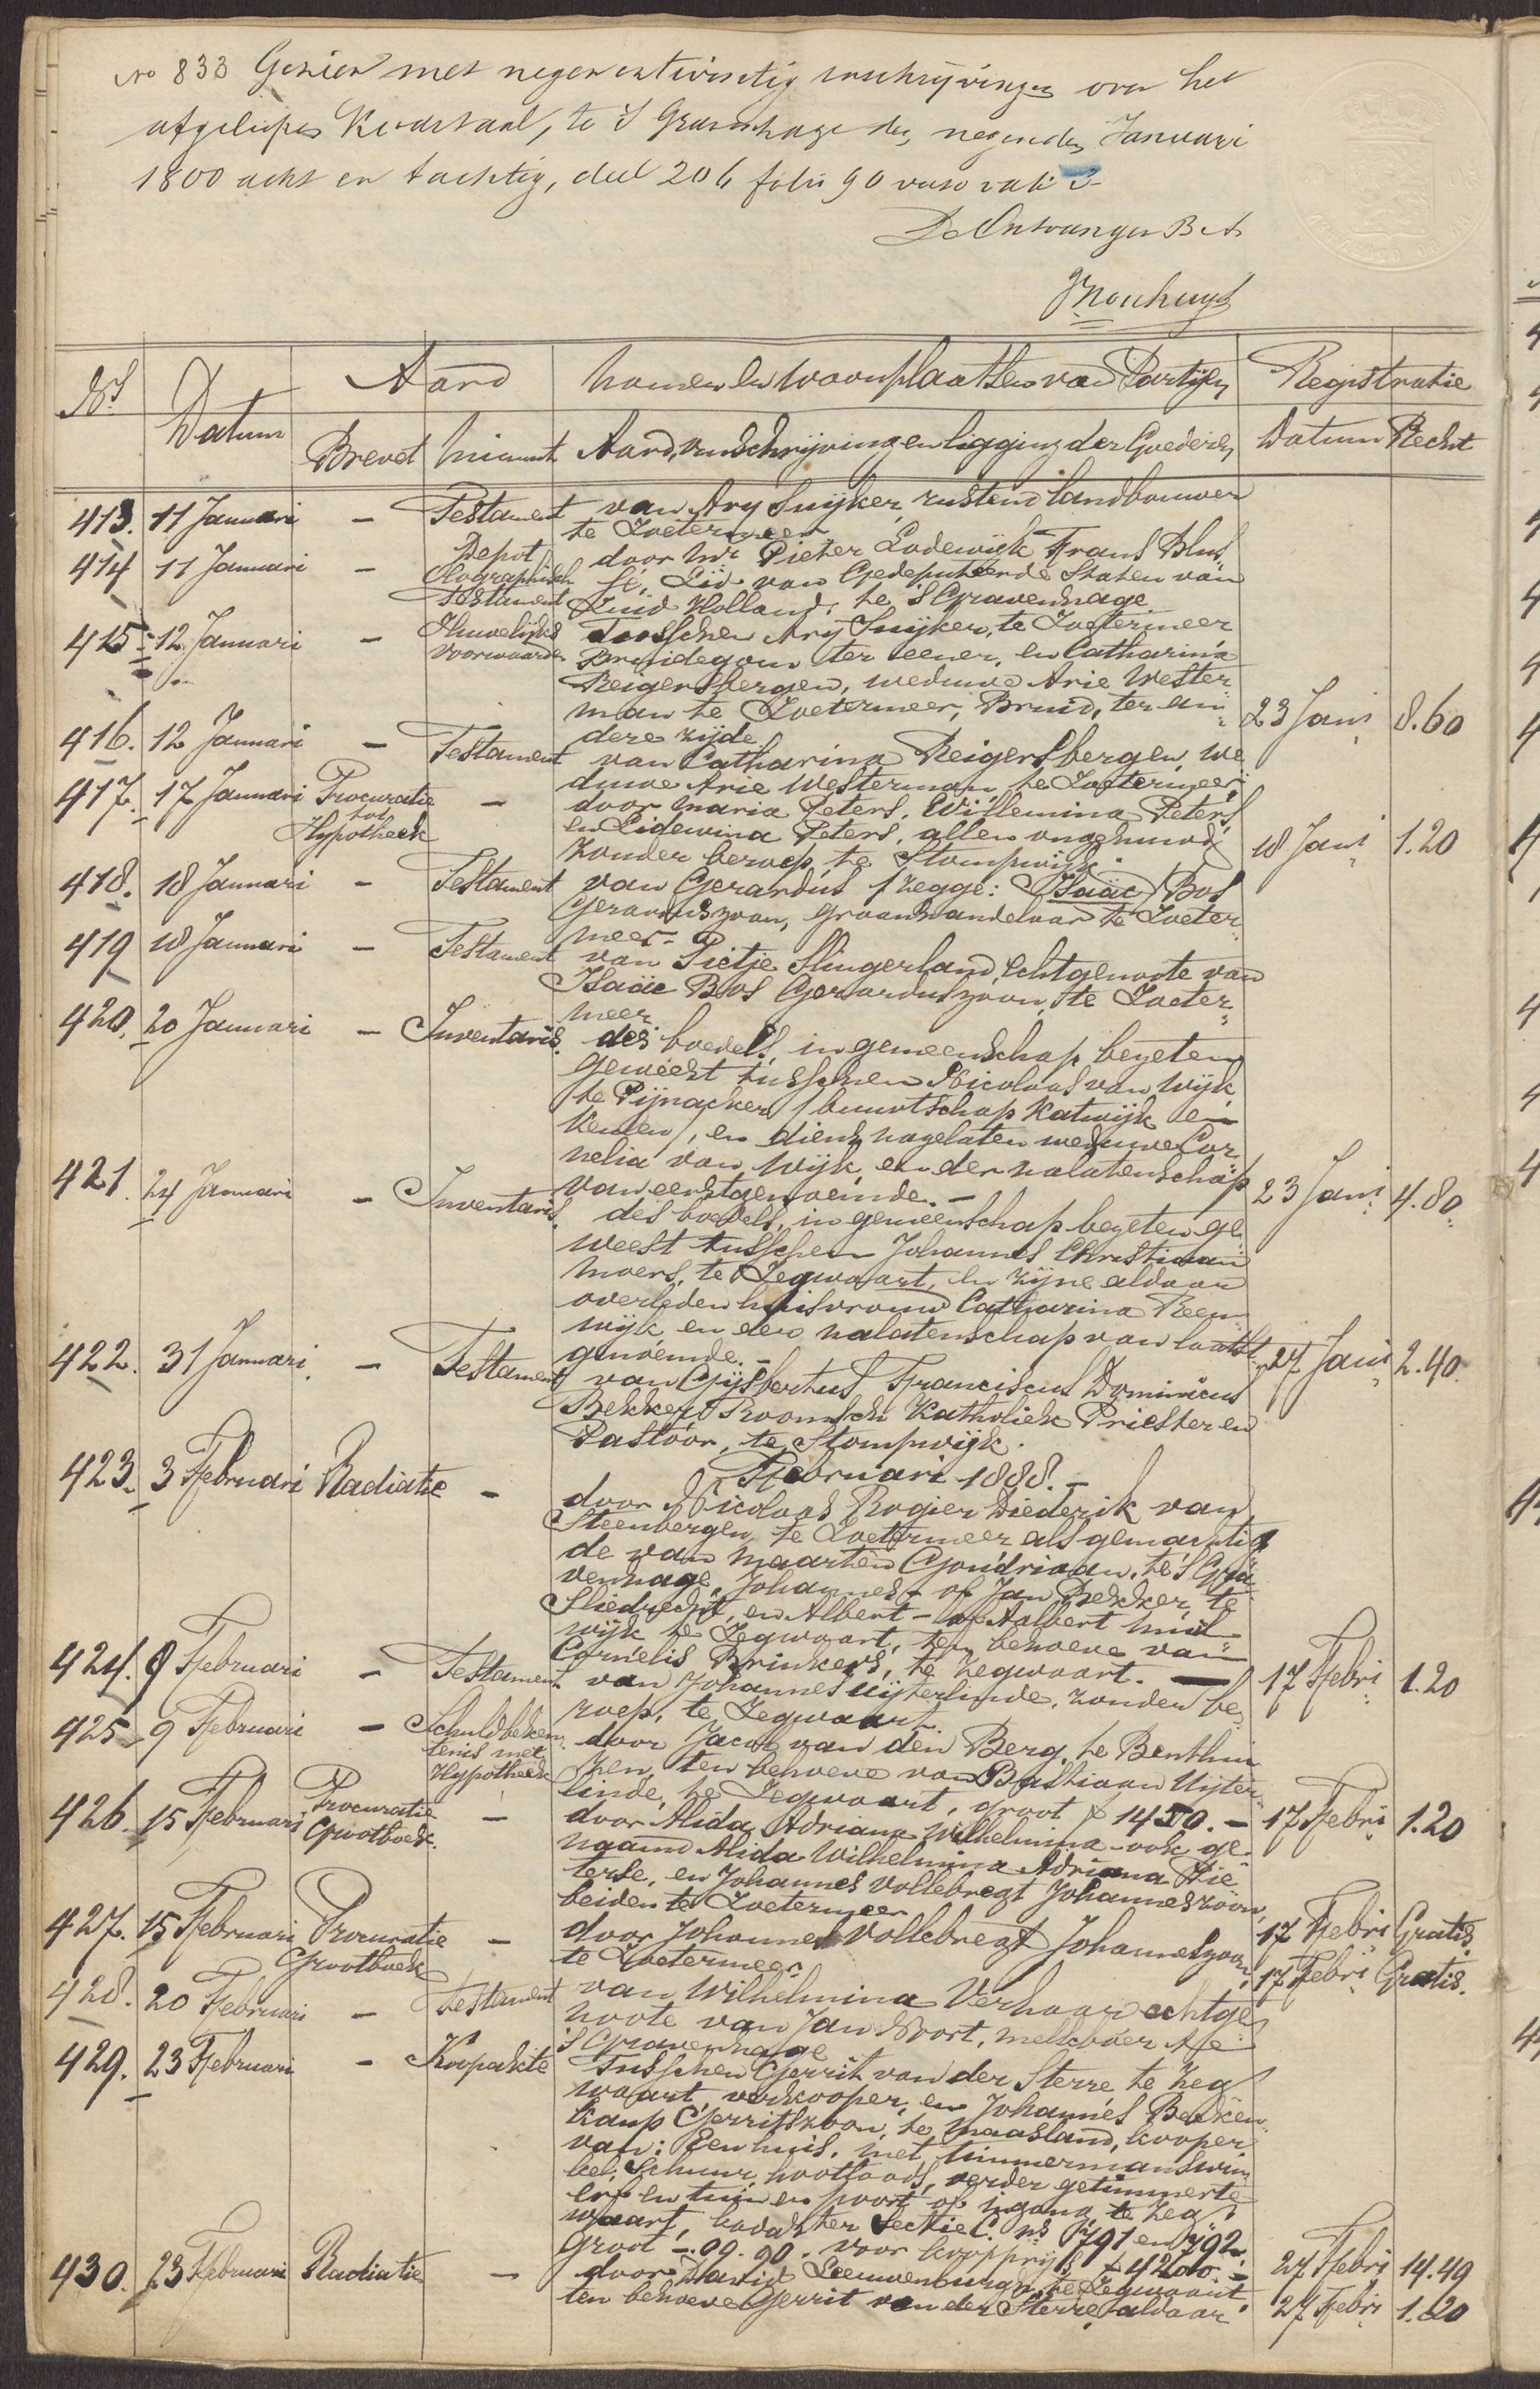 No 833 Gezien met negenentwintig inschrijvingen over het
afgeloopen Kwartaal, te 's Gravenhage den negenden Januari
1800 acht en tachtig, deel 206 folio 90 verso vak 3
De Ontvanger B A
Nos Datum Aard Namen en Woonplaatsen van Partijen Registratie
Brevet Minuut Aard, omschrijving en ligging der Goederen Datum Recht
413. 11 Januari - Testament van Ary Suijker, rustend landbouwer
te Zoetermeer
414 11 Januari - Depot door Mr Pieter Lodewijk Frans Blus
Olographisch sé, Lid van Gedeputeerde Staten van
Testament Zuid Holland, te 's Gravenhage
415 12 Januari - Huwelijks Tusschen Ary Suijker, te Zoetermeer
voorwaarden Bruidegom ter eener, en Catharina
Reigersbergen, weduwe Arie Wester
man te Zoetermeer, Bruid, ter an 23 Jani 8.60
dere zijde
416. 12 Januari - Testament van Catharina Reigersbergen, we
duwe Arie Westerman, te Zoetermeer
417. 17 Januari Procuratie - door Maria Peters, Willemina Peters,
tot
Hypotheek en Lidewina Peters, allen ongehuwd
zonder beroep, te Stompwijk. 18 Jani 1.20
418. 18 Januari - Testament van Gerardus /zegge: Isaäc/ Bos
Gerarduszoon, graanhandelaar te Zoeter
meer.-
419 18 Januari - Testament van Pietje Slingerland, Echtgenoote van
Isaäc Bos Gerarduszoon, te Zoeter
meer
420. 20 Januari - Inventaris. des boedels, in gemeenschap bezeten
geweest tusschen Nicolaas van Wijk
te Pijnacker /buurtschap Katwijk en
Kenen/, en diens nagelaten weduwe Cor
nelia van Wijk, en der nalatenschap
van eerstgenoemde.- 23 Jani 4.80
421. 24 Januari - Inventaris. des boedels, in gemeenschap bezeten ge
weest tusschen Johannes Christiaan
Moers, te Zegwaart, en zijne aldaar
overleden huisvrouw Catharina Reeu
wijk en der nalatenschap van laatst
genoemde.- 27 Jani 2.40
422. 31 Januari. - Testament van Gijsbertus Franciscus Dominicus
Bekker, Roomsch Katholiek Priester en
Pastoor, te Stompwijk.
Februari 1888.-
423. 3 Februari Radiatie - door Nicolaas Rogier Diederik van
Steenbergen te Zoetermeer als gemachtig
de van Maarten Goudriaan, te 's Gra
venhage, Johannes - of Jan Bekker, te
Sliedrecht, en Albert - of Aalbert Muil
wijk te Zegwaart, ten behoeve van
Cornelis Brinkers, te Zegwaart. - 17 Febri 1.20
424. 9 Februari - Testament van Johannes Uijterlinde, zonder be
roep, te Zegwaart.
425 9 Februari - Schuldbeken door Jacob van den Berg, te Benthui
tenis met zen, ten behoeve van Bastiaan Uijter
Hypotheek linde, te Zegwaart, groot ƒ 1450.- 17 Febri 1.20
426. 15 Februari Procuratie - door Alida Adriana Wilhelmina - ook ge
Grootboek. naamd Alida Wilhelmina Adriana Pie
terse, en Johannes Vollebregt Johanneszoon,
beiden te Zoetermeer 17 Febri Gratis.
427. 15 Februari Procuratie - door Johannes Vollebregt Johanneszoon
Grootboek te Zoetermeer 17 Febri Gratis.
428. 20 Februari - Testament van Wilhelmina Verhaar echtge
noote van Jan Noort, melkboer te
's Gravenhage
429. 23 Februari - Koopakte Tusschen Gerrit van der Sterre, te Zeg
waart, verkooper, en Johannes Berken
kamp Gerritszoon, te Maasland, kooper
van: Een huis, met timmermanswin
kel, Schuur, houtloods, verder getimmerte
erf en tuin en poort of ingang te Zeg
waart, kadaster Sectie C. ns 791 en 792
groot -.09.90. voor koopprijs ƒ 4200.- 27 Febri 14.49
430. 23 Februari Radiatie - door David Leeuwenburgh, te Zegwaart,
ten behoeve Gerrit van der Sterre, aldaar 27 Febri 1.20